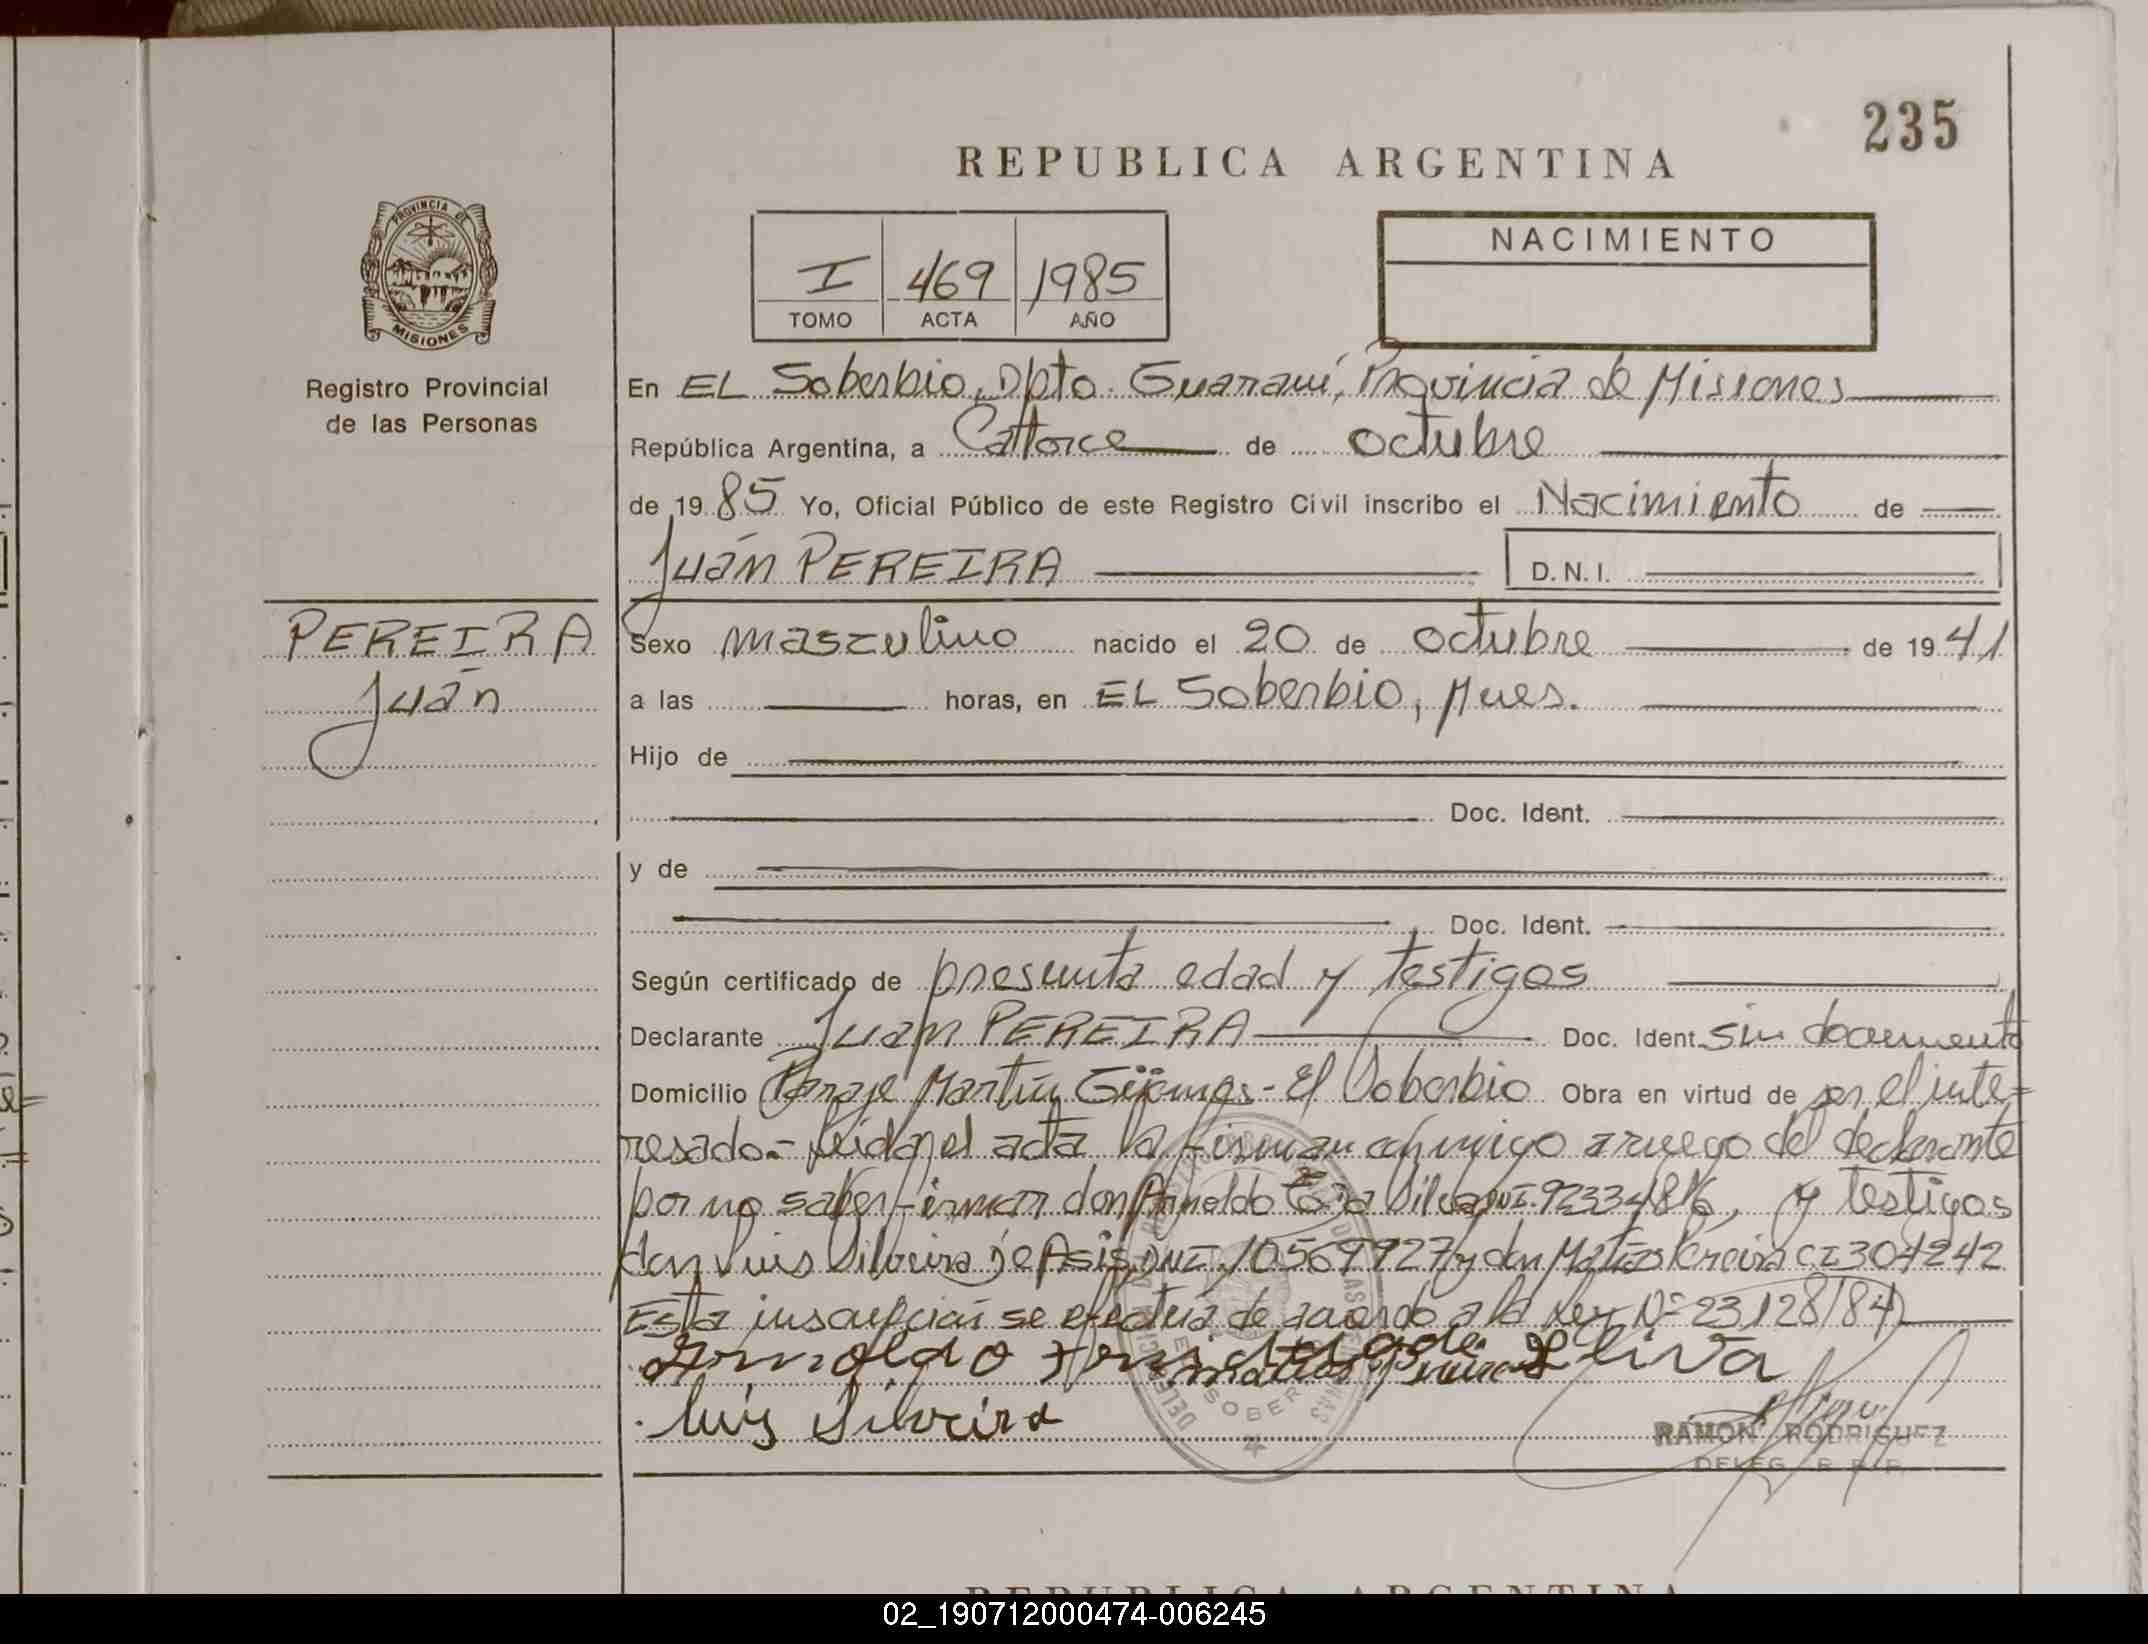 235
REPUBLICA ARGENTINA
PROVINCIA DE
MISIONES
Registro Provincial
de las Personas
I 469 1985
TOMO ACTA AÑO
NACIMIENTO
En EL Soberbio, Dpto. Guaraní, Provincia de Misiones
República Argentina, a Cattorce de octubre
de 1985 Yo, Oficial Público de este Registro Civil inscribo el Nacimiento de
Juán PEREIRA D.N.I.
PEREIRA
Juán
Sexo masculino nacido el 20 de octubre de 1941
a las horas, en EL Soberbio, Mnes.
Hijo de
Doc. Ident.
y de
Doc. Ident.
Según certificado de presunta edad y testigos
Declarante Juan PEREIRA Doc. Ident. sin documento
Domicilio Paraje Martín Güemes - El Soberbio Obra en virtud de ser el inte=
resado.- Leida el acta la firman conmigo a ruego del declarante
por no saber firmar don Arnoldo Silva DNI. y testigos
don Luis Silveira D'Asis, DNI. 10569927 y don Matias Pereira CI 304242
Esta inscripción se efectua de acuerdo a la Ley Nº 23128/84
Arnoldo Siliva
matias Pereira
Luis Silveira
RAMON RODRIGUEZ
DELEG. R. P. P.
REPUBLICA ARGENTINA
02_190712000474-006245